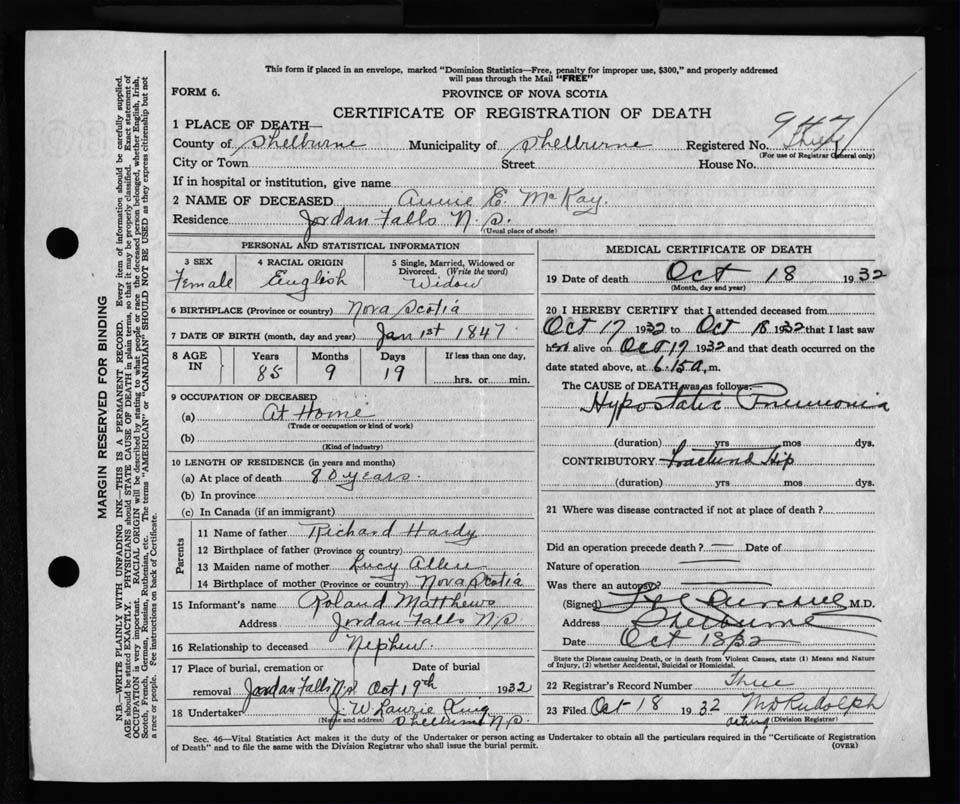 This form if placed in an envelope, marked "Dominion Statistics—Free, penalty for improper use, $300," and properly addressed
will pass through the Mail "FREE"
FORM 6.
PROVINCE OF NOVA SCOTIA
CERTIFICATE OF REGISTRATION OF DEATH
947
1 PLACE OF DEATH—
County of Shelburne Municipality of Shelburne Registered No. Three
(For use of Registrar General only)
City or Town Street House No.
If in hospital or institution, give name
2 NAME OF DECEASED Annie E. McKay.
Residence Jordan Falls N.S.
(Usual place of abode)
PERSONAL AND STATISTICAL INFORMATION
3 SEX 4 RACIAL ORIGIN 5 Single, Married, Widowed or
Divorced. (Write the word)
Female English Widow
6 BIRTHPLACE (Province or country) Nova Scotia
7 DATE OF BIRTH (month, day and year) Jan 1st 1847
8 AGE IN Years Months Days If less than one day,
85 9 19 hrs. or min.
9 OCCUPATION OF DECEASED
(a) At Home
(Trade or occupation or kind of work)
(b)
(Kind of industry)
10 LENGTH OF RESIDENCE (in years and months)
(a) At place of death 80 years.
(b) In province
(c) In Canada (if an immigrant)
Parents
11 Name of father Richard Hardy
12 Birthplace of father (Province or country)
13 Maiden name of mother Lucy Allen
14 Birthplace of mother (Province or country) Nova Scotia
15 Informant's name Roland Matthews
Address Jordan Falls N.S.
16 Relationship to deceased Nephew.
17 Place of burial, cremation or Date of burial
removal Jordan Falls N.S. Oct 19th 1932
18 Undertaker J. W. Laurie King
(Name and address) Shelburne N.S.
MEDICAL CERTIFICATE OF DEATH
19 Date of death Oct 18 1932
(Month, day and year)
20 I HEREBY CERTIFY that I attended deceased from
Oct 17 1932 to Oct 18 1932 that I last saw
her alive on Oct 17 1932 and that death occurred on the
date stated above, at 6.15 a.m.
The CAUSE of DEATH was as follows:
Hypostatic Pneumonia
(duration) yrs mos dys.
CONTRIBUTORY Fractured Hip
(duration) yrs mos dys.
21 Where was disease contracted if not at place of death?
Did an operation precede death? — Date of
Nature of operation —
Was there an autopsy? —
(Signed) M.D.
Address Shelburne
Date Oct 18/32
State the Disease causing Death, or in death from Violent Causes, state (1) Means and Nature
of Injury, (2) whether Accidental, Suicidal or Homicidal.
22 Registrar's Record Number Three
23 Filed Oct 18 1932 Rudolph
acting (Division Registrar)
Sec. 46—Vital Statistics Act makes it the duty of the Undertaker or person acting as Undertaker to obtain all the particulars required in the "Certificate of Registration
of Death" and to file the same with the Division Registrar who shall issue the burial permit. (OVER)
MARGIN RESERVED FOR BINDING
N.B.—WRITE PLAINLY WITH UNFADING INK—THIS IS A PERMANENT RECORD. Every item of information should be carefully supplied.
AGE should be stated EXACTLY. PHYSICIANS should STATE CAUSE OF DEATH in plain terms, so that it may be properly classified. Exact statement of
OCCUPATION is very important. RACIAL ORIGIN will be described by stating to what people or race the deceased person belonged, whether English, Irish,
Scotch, French, German, Russian, Ruthenian, etc. The terms "AMERICAN" or "CANADIAN" SHOULD NOT BE USED as they express citizenship but not
a race or people. See instructions on back of Certificate.